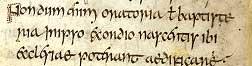 Nondum enim oratoria ł baptiste
ria in ipso exordio nascentis ibi
ecclesiae poterant aedificari